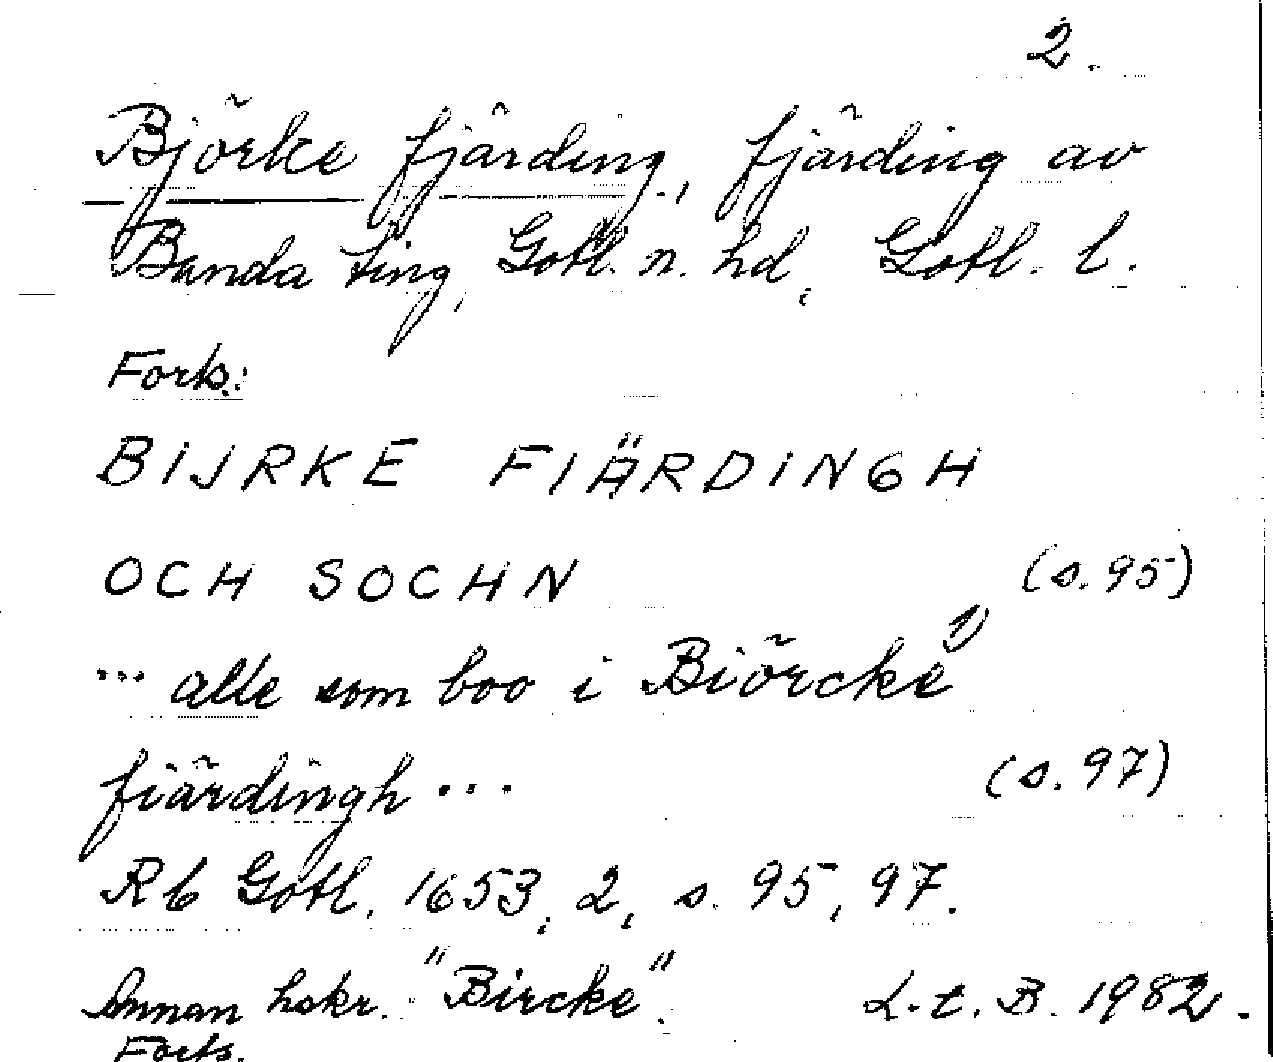 2.
Björke fjärding, fjärding av
Banda ting, Gotl. n. hd, Gotl. l.
Forts.:
BIJRKE FIÄRDINGH
OCH SOCHN (s. 95)
... alle som boo i Biörcke 1)
fiärdingh ... (s. 97)
Rb Gotl. 1653, 2, s. 95, 97.
Annan hskr. "Bircke". L.t. B. 1982.
Forts.